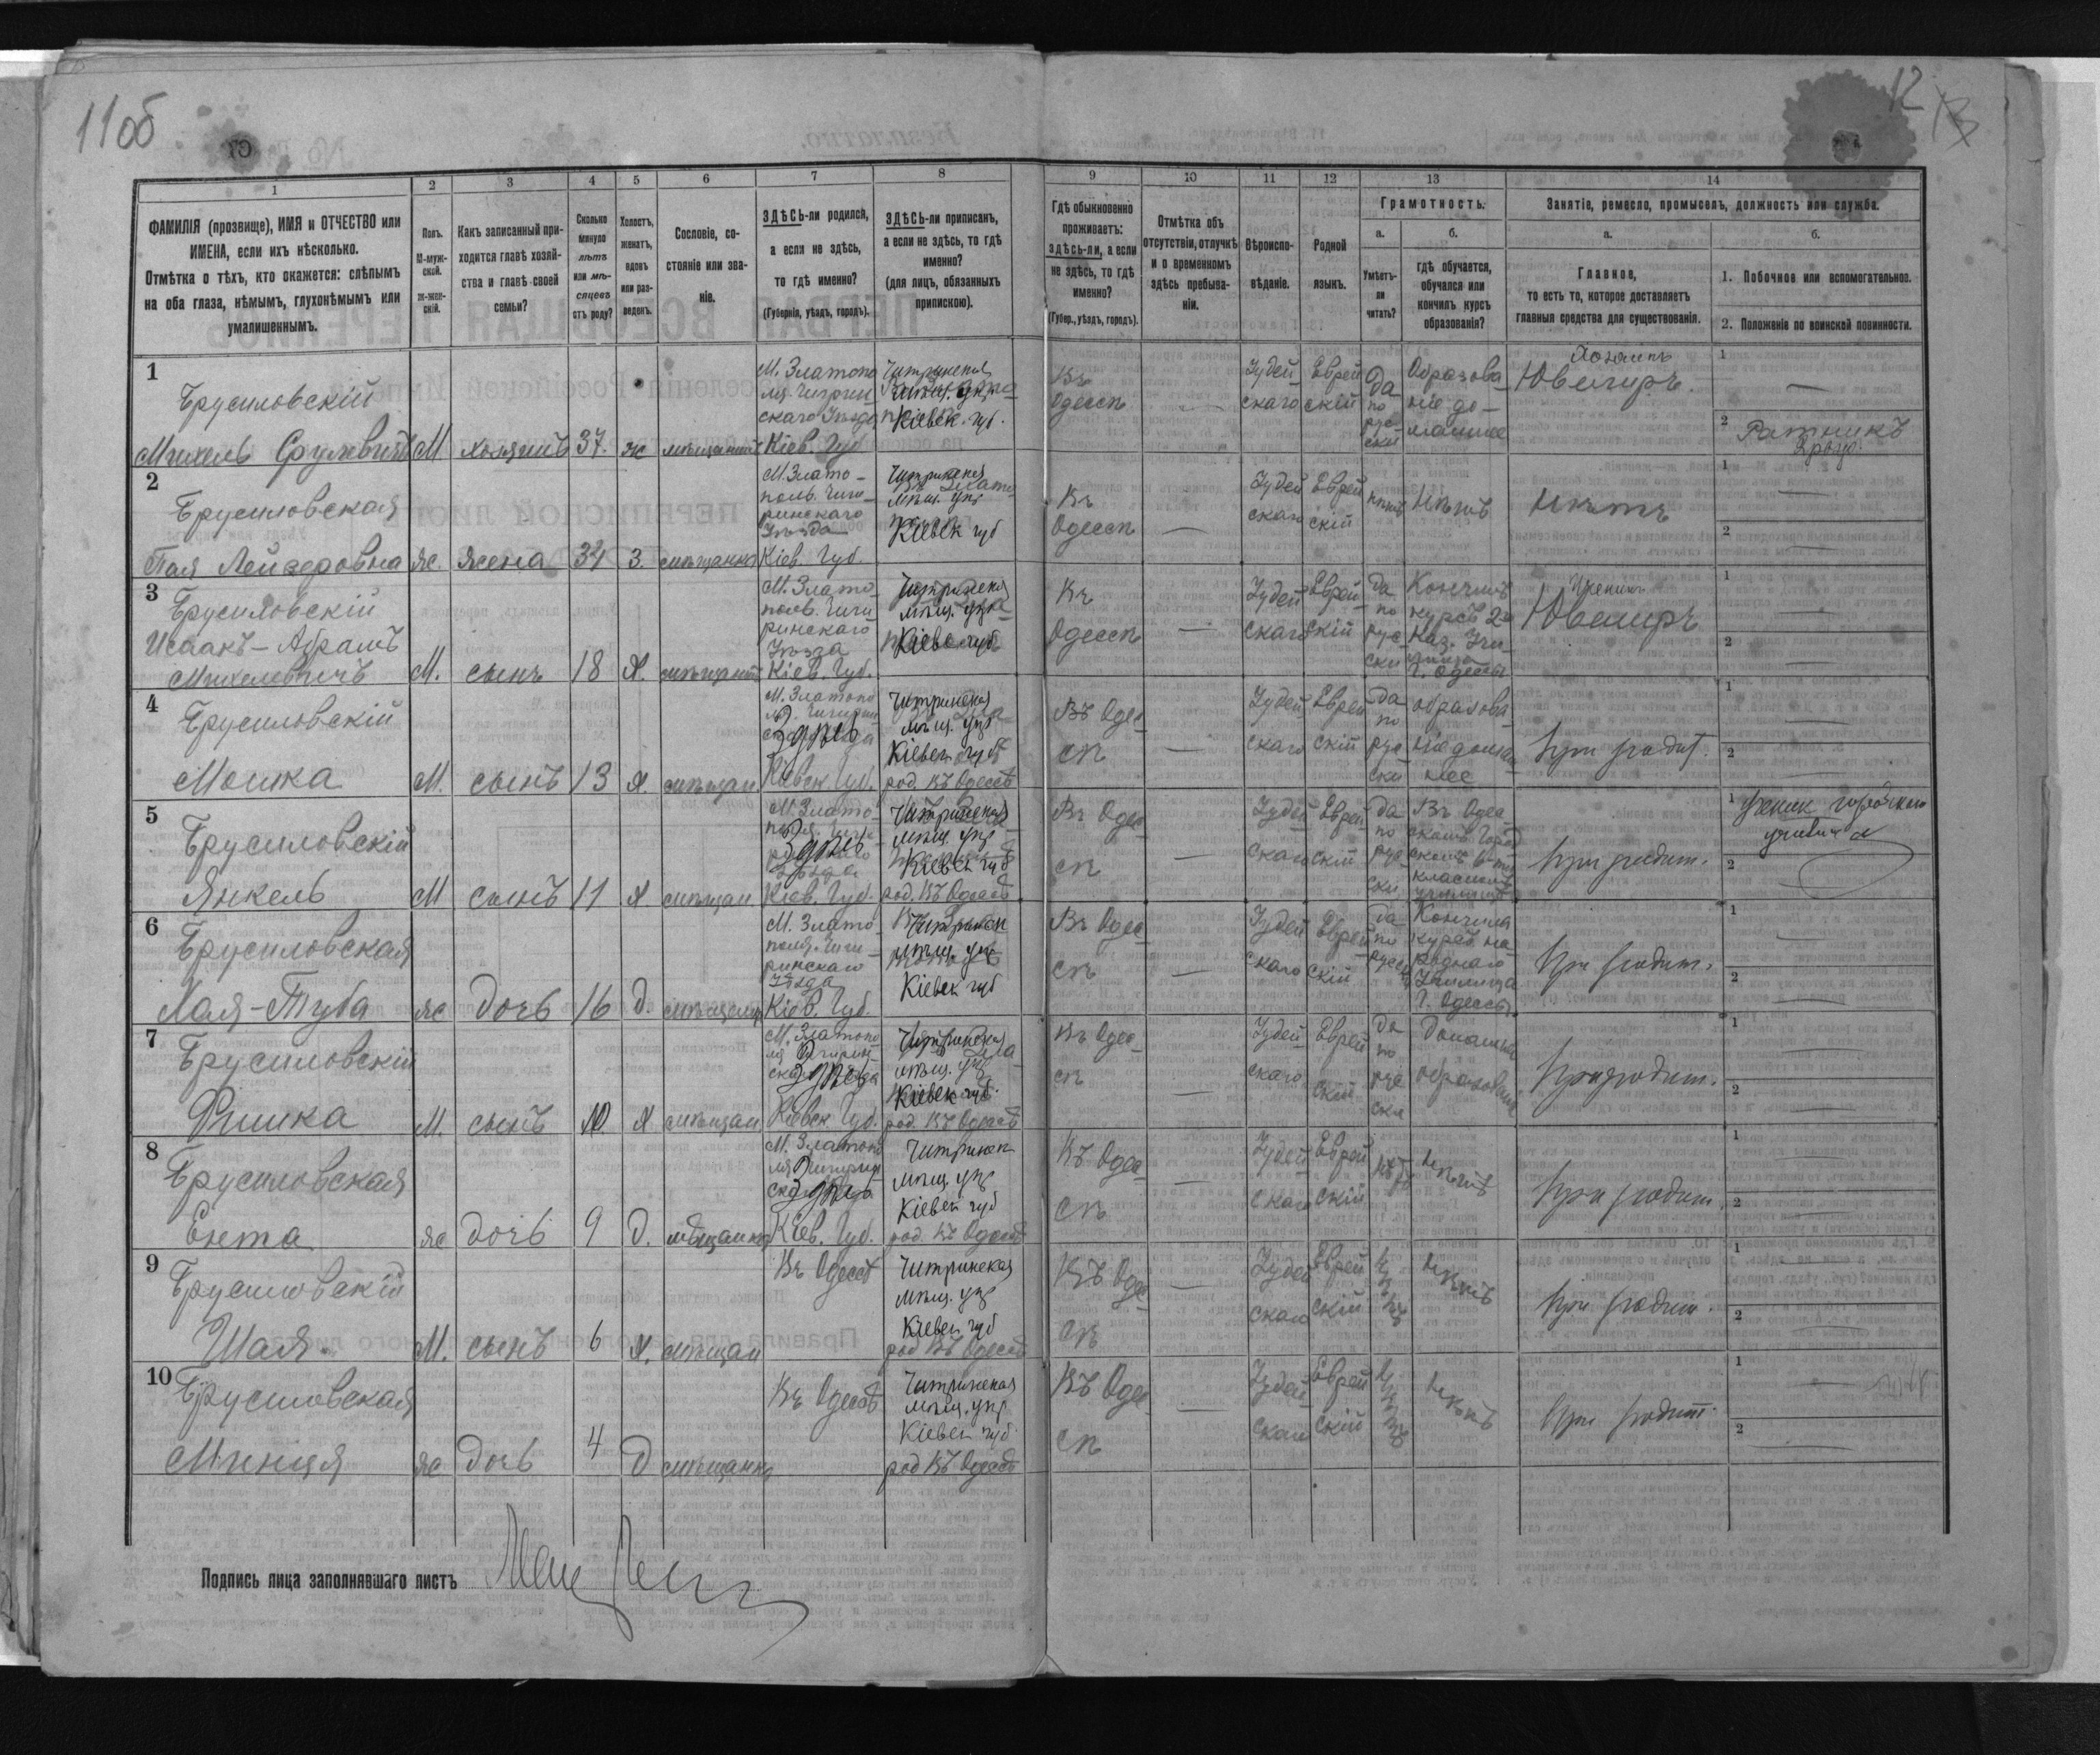 11об
12
1
2
3
4
5
6
7
8
9
10
11
12
13
14
ФАМИЛІЯ (прозвище), ИМЯ и ОТЧЕСТВО или
ИМЕНА, если ихъ нѣсколько.
Отмѣтка о тѣхъ, кто окажется: слѣпымъ
на оба глаза, нѣмымъ, глухонѣмымъ или
умалишеннымъ.
Полъ.
М-муж-
ской.
ж-жен-
скій.
Какъ записанный при-
ходится главѣ хозяй-
ства и главѣ своей
семьи?
Сколько
минуло
лѣтъ
или мѣ-
сяцевъ
отъ роду?
Холостъ,
женатъ,
вдовъ
или раз-
веденъ.
Сословіе, со-
стояніе или зва-
ніе.
ЗДѢСЬ-ли родился,
а если не здѣсь,
то гдѣ именно?
(Губернія, уѣздъ, городъ).
ЗДѢСЬ-ли приписанъ,
а если не здѣсь, то гдѣ
именно?
(для лицъ, обязанныхъ
припискою).
Гдѣ обыкновенно
проживаетъ:
здѣсь-ли, а если
не здѣсь, то гдѣ
именно?
(Губер., уѣздъ, городъ).
Отмѣтка объ
отсутствіи, отлучкѣ
и о временномъ
здѣсь пребыва-
ніи.
Вѣроиспо-
вѣданіе.
Родной
языкъ.
Грамотность.
а.
Умѣетъ-
ли
читать?
б.
гдѣ обучается,
обучался или
кончилъ курсъ
образованія?
Занятіе, ремесло, промыселъ, должность или служба.
а.
Главное,
то есть то, которое доставляетъ
главныя средства для существованія.
б.
1. Побочное или вспомогательное.
2. Положеніе по воинской повинности.
1
Брусиловскій
Михель Срулевичъ М хозяинъ 37. ж мѣщанинъ
М. Златопо
ля Чигрин-
скаго Уѣзда
Кіев. Губ.
Чигринская
Кіевск. губ.
Въ
Одессѣ
—
Іудей
скаго
Еврей
скій
Да
по
рус-
ски
Образова
ніе до-
машнее
Хозяинъ
Ювелиръ.
1 —
2 Ратникъ
2 разр.
2
Брусиловская
Лейзеровна ж. жена 34 З. мѣщанка
М. Злато-
поль. Чиги-
ринскаго
Уѣзда
Кіев. Губ.
Чигринская
мѣщ. упр
Кіевск губ
Въ
Одессѣ
—
Іудей
скаго
Еврей
скій
нѣтъ
Нѣтъ
Нѣтъ
1 —
2 —
3
Брусиловскій
Исаакъ-Абрамъ
Михелевичъ М. сынъ 18 Х. мѣщанинъ
М. Злато-
поль. Чиги
ринскаго
Уѣзда
Кіев. Губ.
Чигринская
мѣщ. упр
Въ
Одессѣ
—
Іудей
скаго
Еврей
скій
Да
по
рус
ски
Кончилъ
курсъ 2го
Каз. Учи-
лища
г. Одессы
Ученикъ
Ювелиръ
1 —
2 —
4
Брусиловскій
Мошка М. сынъ 13 Х. мѣщан
М. Златопо
Здѣсь
Кіевск. Губ.
Чигринская
мѣщ. упр
Кіевск губ
род. въ Одессѣ
Въ Одес
сѣ
—
Іудей
скаго
Еврей
скій
да
по
рус
ски
образова
ніе домаш
нее
При родит.
1 —
2 —
5
Брусиловскій
Янкель М сынъ 11 Х мѣщан
М. Злато-
Здѣсь
Кіев. Губ.
Чигринская
мѣщ. упр
Кіевск губ
род. въ Одессѣ
Въ Одес
сѣ
—
Іудей
скаго
Еврей
скій
да
по
рус
ски
Въ Одес-
скомъ Город
скомъ 6-ти
класномъ
училищѣ
При родит.
1 Ученик городского
училища
2
6
Брусиловская
Лая-Туба ж дочь 16 Д.
М. Злато-
поля. Чиги-
ринскаго
Уѣзда
Кіев. Губ.
мѣщ. упр
Кіевск губ
Въ Одес
сѣ
—
Іудей
скаго
Еврей
скій
да
по
русск
Кончила
курсъ на-
роднаго
Училища
г. Одессы
При родит.
1 —
2 —
7
Брусиловскій
Фишка М. сынъ 10. Х мѣщан
М. Златопо
Здѣсь
Кіевск Губ.
Чигринская
мѣщ. упр
Кіевск губ.
род. въ Одессѣ
Въ Одес-
сѣ
—
Іудей
скаго
Еврей
скій
Да
по
рус
ски
Домашнее
образованіе
При родит.
1 —
2 —
8
Брусиловская
Ента ж дочь 9 Д. мѣщанка
М. Златопо
Здѣсь
Кіев. Губ.
Чигринск
мѣщ. упр
Кіевск губ
род. въ Одессѣ
Въ Одес
сѣ
—
Іудей
скаго
Еврей
скій
нѣтъ
Нѣтъ
При родит.
1 —
2 —
9
Брусиловскій
Шая. М. сынъ 6 Х. мѣщан
Въ Одессѣ
Чигринская
мѣщ. упр
Кіевск губ
род въ Одессѣ
Въ Одес
сѣ
—
Іудей
скаго
Еврей
скій
Нѣтъ
При родит.
1 —
2 —
10
Брусиловская
Минця ж дочь 4 Д мѣщанка
Въ Одессѣ
Чигринская
мѣщ. упр
Кіевск губ.
род въ Одессѣ
Въ Одес
сѣ
—
Іудей
скаго
Еврей
скій
Нѣтъ
При родит.
1 —
2 —
Подпись лица заполнявшаго листъ